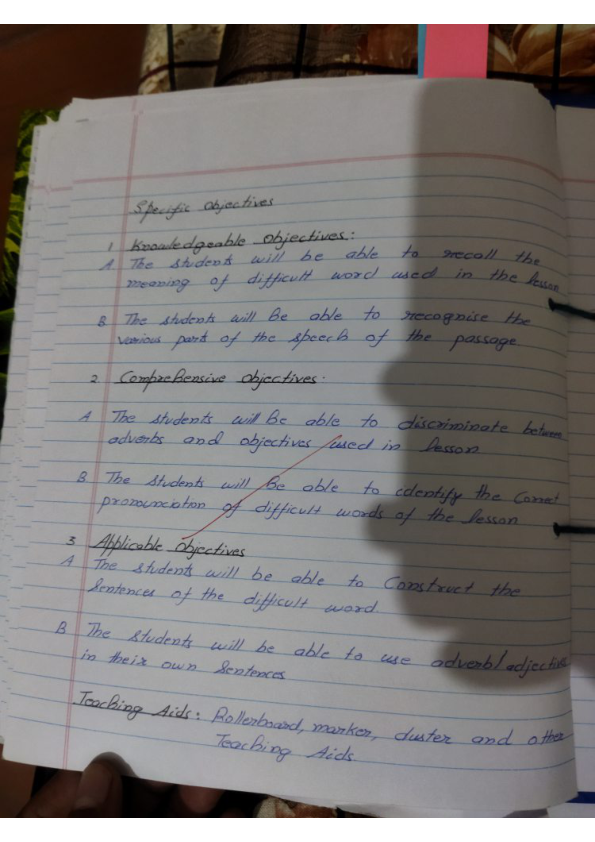 Specific Objectives
1 Knowledgeable Objectives:
A The students will be able to recall the
meaning of difficult word used in the lesson
B The students will Be able to recognise the
various part of the speech of the passage
2 Comprehensive objectives:
A The students will Be able to discriminate between
adverbs and objectives used in lesson
B The students will be able to identify the Correct
pronounciation of difficult words of the lesson
3 Applicable Objectives
A The students will be able to Construct the
Sentences of the difficult word
B The students will be able to use adverb/adjective
in their own Sentences
Teaching Aids: Rollerboard, marker, duster and other
Teaching Aids